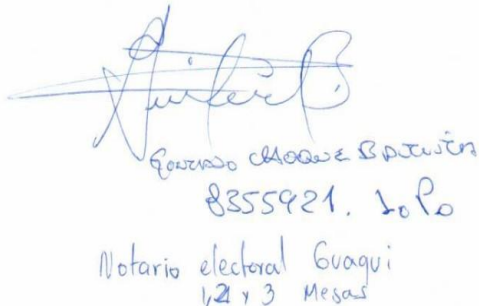 Choque Bautista
8355921. La Pa
Notario electoral Guaqui
1,2 y 3 Mesas